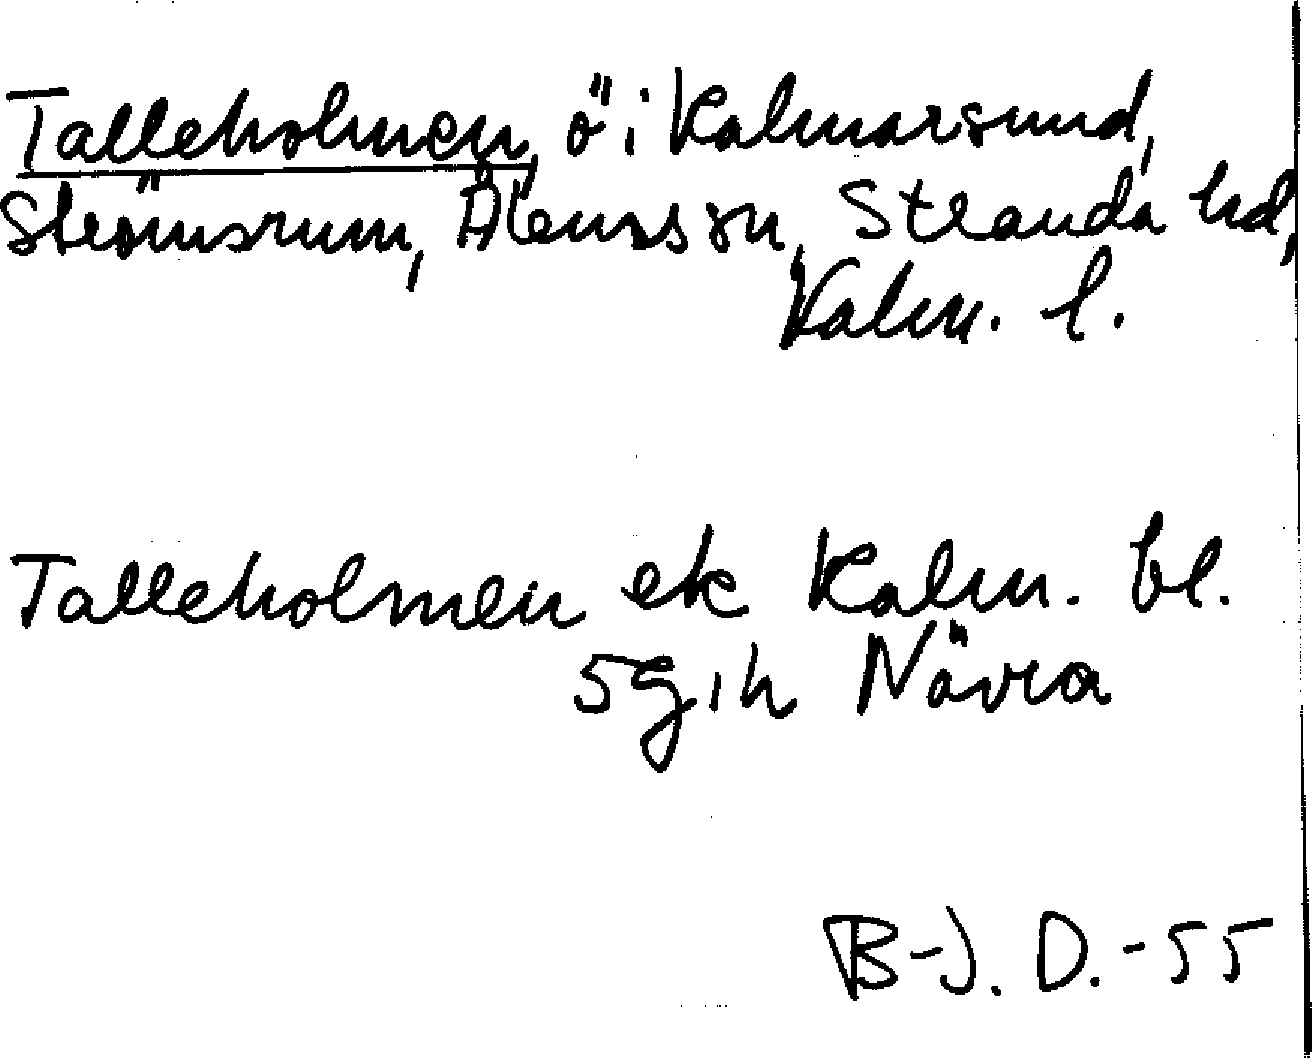 Talleholmen, ö i Kalmarsund,
Strömsrum, Ålems sn, Stranda hd,
Kalm. l.
Talleholmen ek Kalm. bl.
5g ih Nävra
B-J. D.-55